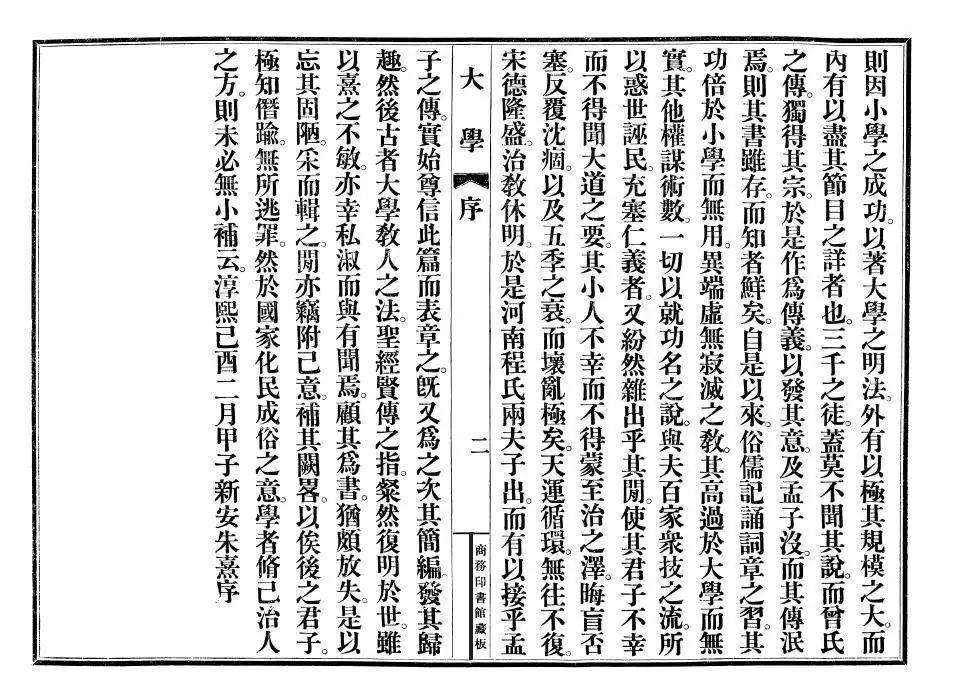 則因小學之成功。以著大學之明法。外有以極其規模之大。而
內有以盡其節目之詳者也。三千之徒。蓋莫不聞其說。而曾氏
之傳。獨得其宗。於是作爲傳義。以發其意。及孟子沒。而其傳泯
焉。則其書雖存。而知者鮮矣。自是以來。俗儒記誦詞章之習。其
功倍於小學而無用。異端虛無寂滅之教。其高過於大學而無
實。其他權謀術數。一切以就功名之說。與夫百家衆技之流。所
以惑世誣民。充塞仁義者。又紛然雜出乎其閒。使其君子不幸
而不得聞大道之要。其小人不幸而不得蒙至治之澤。晦盲否
塞。反覆沈痼。以及五季之衰。而壞亂極矣。天運循環。無往不復。
宋德隆盛。治教休明。於是河南程氏兩夫子出。而有以接乎孟
大學 序 二 商務印書館藏板
子之傳。實始尊信此篇而表章之。旣又爲之次其簡編。發其歸
趣。然後古者大學教人之法。聖經賢傳之指。粲然復明於世。雖
以熹之不敏。亦幸私淑而與有聞焉。顧其爲書。猶頗放失。是以
忘其固陋。采而輯之。閒亦竊附己意。補其闕畧。以俟後之君子。
極知僭踰。無所逃罪。然於國家化民成俗之意。學者脩己治人
之方。則未必無小補云。淳熙己酉二月甲子新安朱熹序